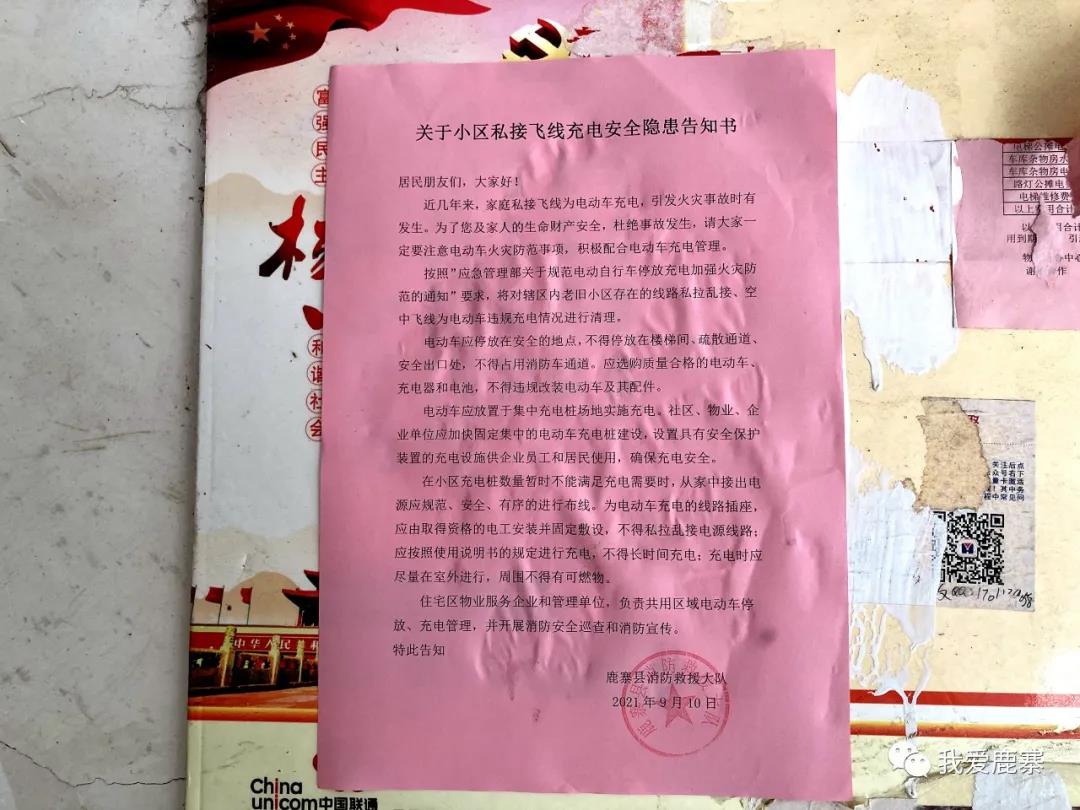 关于小区私接飞线充电安全隐患告知书
居民朋友们，大家好！
近几年来，家庭私接飞线为电动车充电，引发火灾事故时有
发生。为了您及家人的生命财产安全，杜绝事故发生，请大家一
定要注意电动车火灾防范事项，积极配合电动车充电管理。
按照"应急管理部关于规范电动自行车停放充电加强火灾防
范的通知"要求，将对辖区内老旧小区存在的线路私拉乱接、空
中飞线为电动车违规充电情况进行清理。
电动车应停放在安全的地点，不得停放在楼梯间、疏散通道、
安全出口处，不得占用消防车通道。应选购质量合格的电动车、
充电器和电池，不得违规改装电动车及其配件。
电动车应放置于集中充电桩场地实施充电。社区、物业、企
业单位应加快固定集中的电动车充电桩建设，设置具有安全保护
装置的充电设施供企业员工和居民使用，确保充电安全。
在小区充电桩数量暂时不能满足充电需要时，从家中接出电
源应规范、安全、有序的进行布线。为电动车充电的线路插座，
应由取得资格的电工安装并固定敷设，不得私拉乱接电源线路；
应按照使用说明书的规定进行充电，不得长时间充电；充电时应
尽量在室外进行，周围不得有可燃物。
住宅区物业服务企业和管理单位，负责共用区域电动车停
放、充电管理，并开展消防安全巡查和消防宣传。
特此告知
鹿寨县消防救援大队
2021年9月10日
富
强
民
主
和
谐
社
会
中华人民共和
China
unicom中国联通
电梯公摊电
车库杂物房水
车库杂物房电
路灯公摊电
电梯维修费
以上
用合计
用到期
谢
合作
关注后点
我爱鹿寨